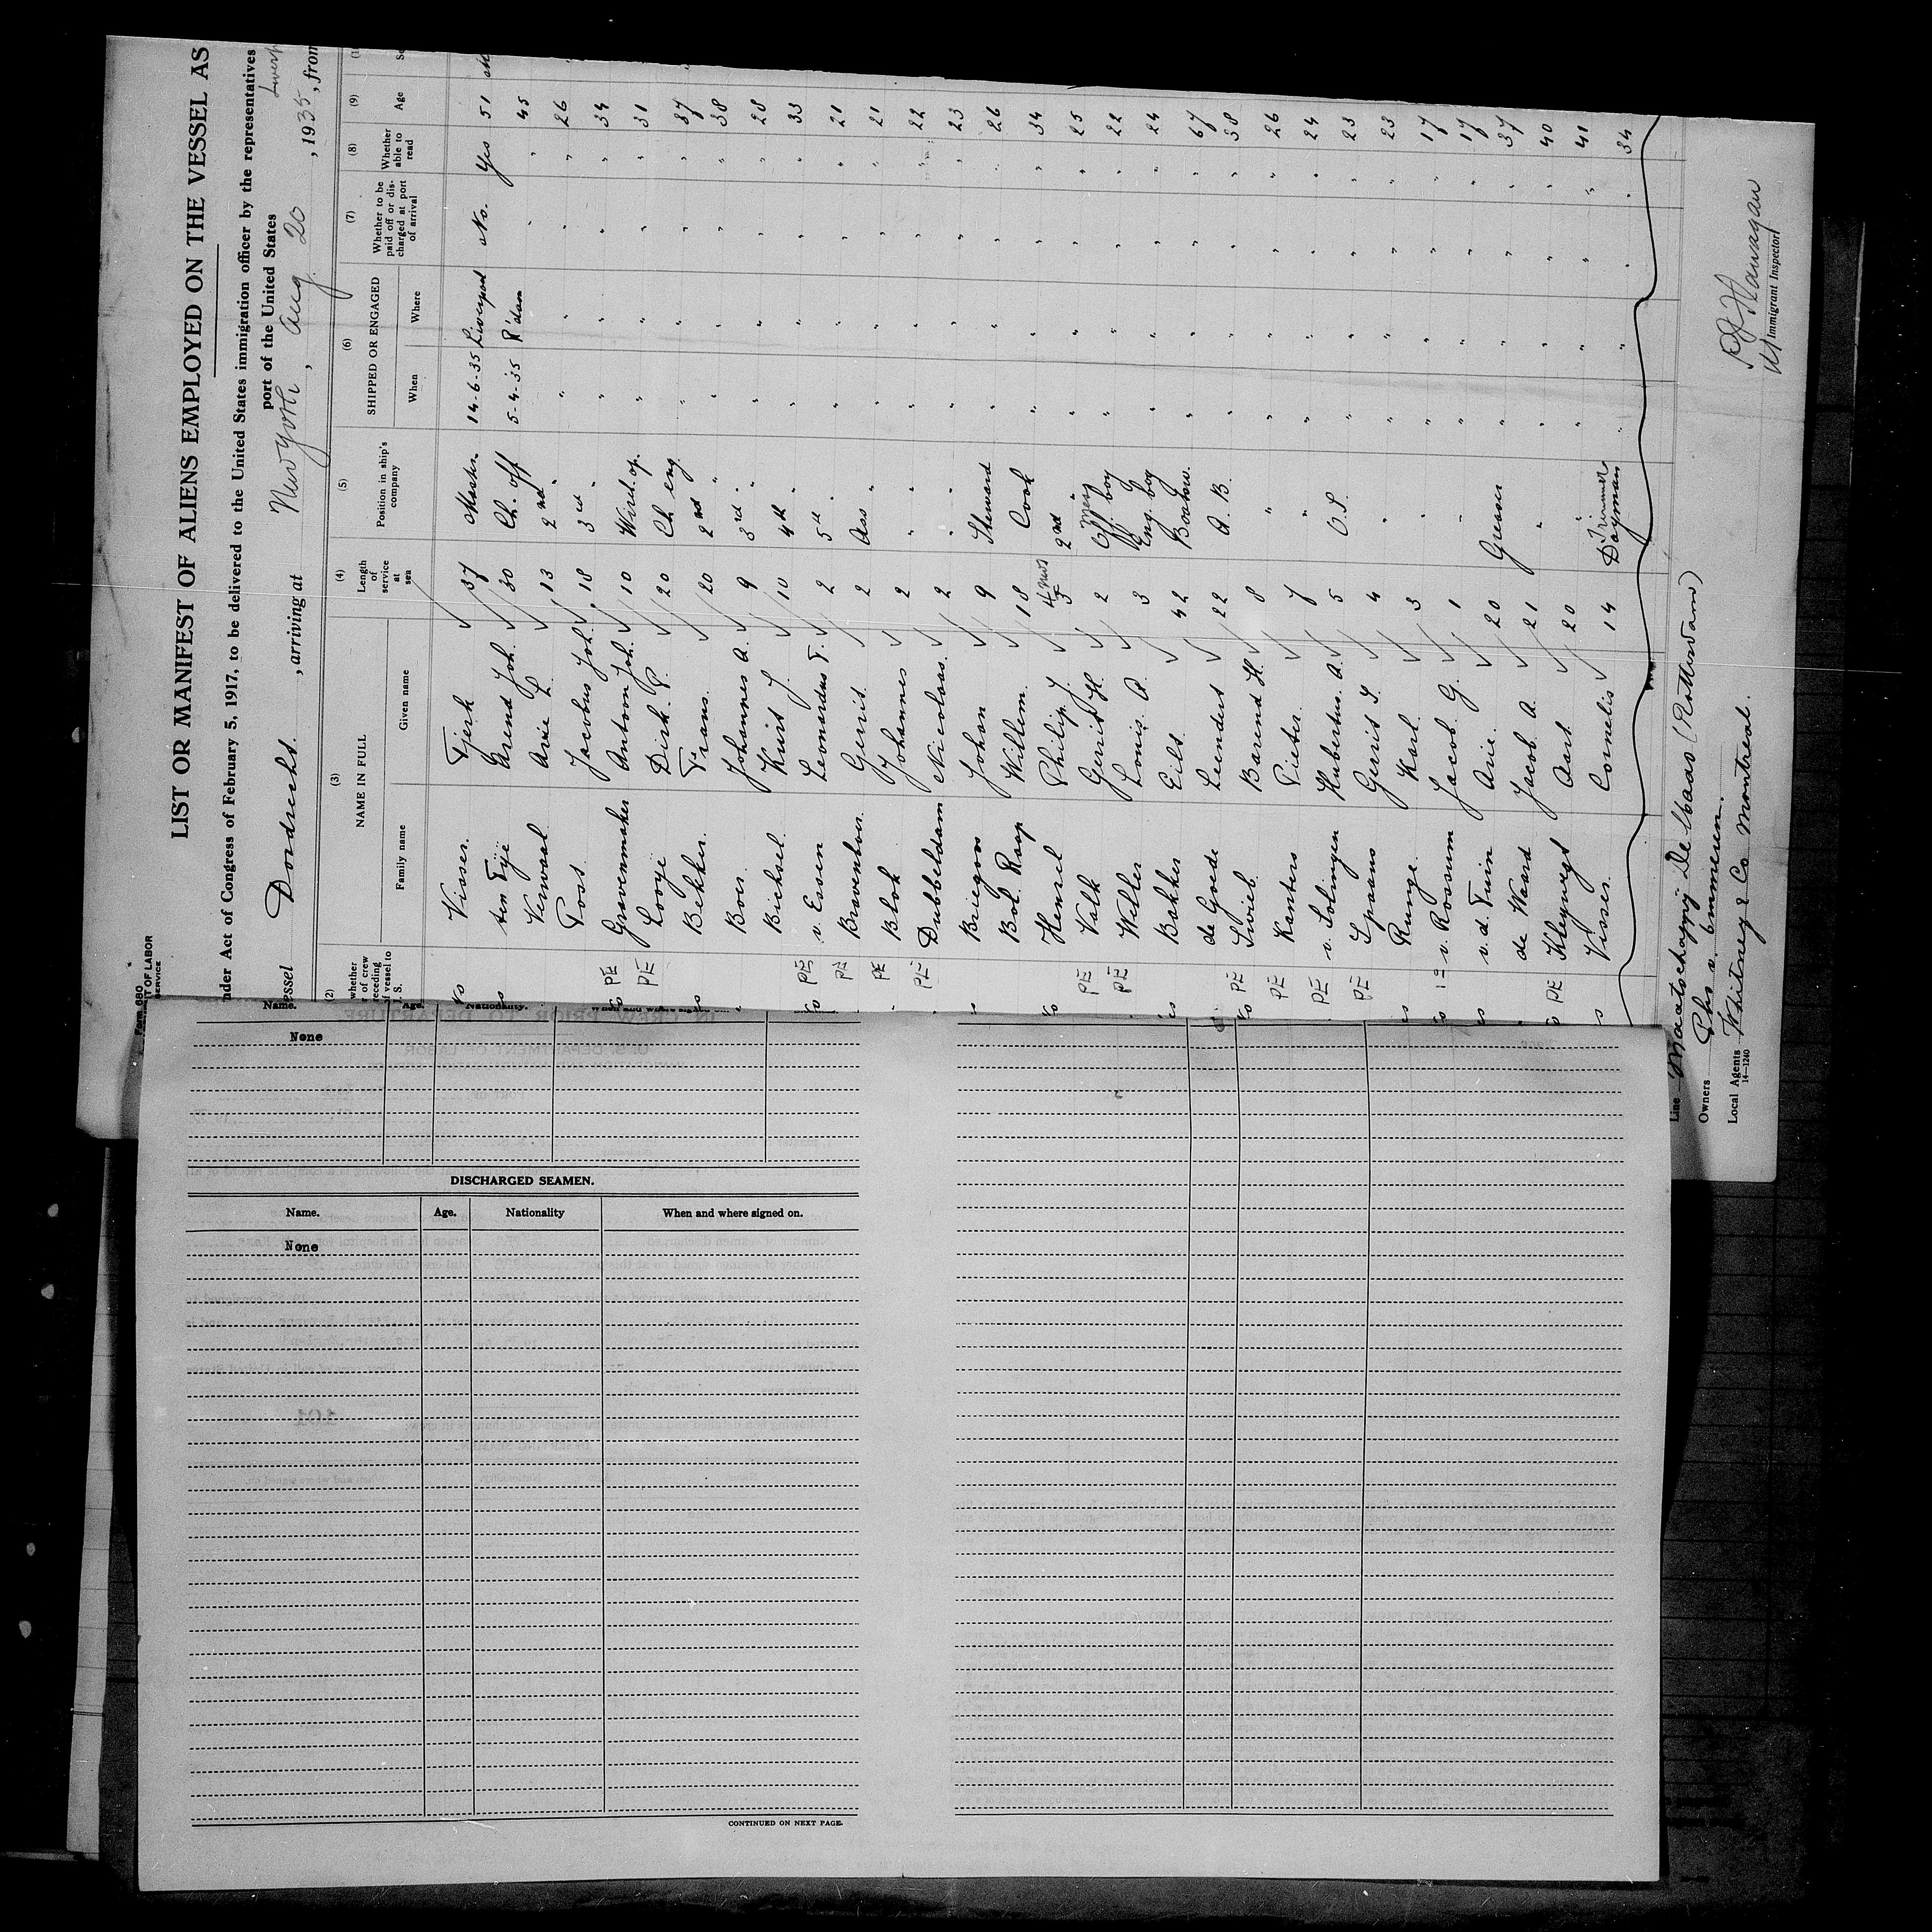 LIST OR MANIFEST OF ALIENS EMPLOYED ON THE VESSEL AS
nder Act of Congress of February 5, 1917, to be delivered to the United States immigration officer by the representatives
port of the United States
essel Dordrecht. , arriving at New York , Aug. 20 , 1935, from
(2) (3) (4) (5) (6) (7) (8) (9)
NAME IN FULL SHIPPED OR ENGAGED
Family name Given name Length of service at sea Position in ship's company When Where Whether to be paid off or discharged at port of arrival Whether able to read Age
Visser. Tjerk 37 Master 14-6-35 Liverpool No. Yes 51
ten Tije Arend Joh. 30 Ch. off 5-4-35 R'dam " " 45
Verwaal Arie L. 13 2nd " " " " " 26
Poot Jacobus Joh. 18 3rd " " " " " 34
PE Gravenmaker Antoon Joh. 10 Wirel. op. " " " " 31
PE Looye Dirk P. 20 Ch. eng. " " " " 37
Bekker. Frans. 20 2nd " " " " " 38
Boer. Johannes A. 9 3rd " " " " " 28
Bieksel. Kurt J. 10 4th " " " " " 33
PE v. Essen Leonardus F. 2 5th " " " " " 21
PE Bravenboer Gerrit. 2 Ass " " " " 21
PE Blok Johannes 2 " " " " " 22
PE Dubbeldam Nicolaas. 2 " " " " " 23
Johan 9 Steward " " " " 26
Bol Raap Willem. 18 Cook " " " " 34
Hensel Philip J. 2nd " " " " " 25
PE Valk Gerrit H. 2 Off. boy " " " " 22
PE Willer Louis A. 3 Eng. boy " " " " 24
Bakker Eils. 42 Boatsw. " " " " 67
de Goede Leendert 22 A. B. " " " " 38
PE Barend H. 8 " " " " " 26
PE Kanters Pieter. 7 " " " " " 24
PE v. Solingen Hubertus. A. 5 O.S. " " " " 23
PE Spaans Gerrit 4 " " " " " 23
Runge. Karl. 3 " " " " " 17
v. Rossum Jacob G. 1 " " " " " 17
v. d. Tuin Arie. 20 Greaser " " " " 37
de Waard Jacob. A. 21 " " " " " 40
PE Kleywegt Aart. 20 " " " " " 41
Visser. Cornelis 14 Trimmer Dayman " " " " 34
Line Maatschappij De Maas (Rotterdam)
Owners Phs v. Ommeren.
Local Agents Whitney & Co Montreal.
14—1240
Immigrant Inspector
Name. Age. Nationality. When and where signed on.
None
DISCHARGED SEAMEN.
Name. Age. Nationality When and where signed on.
None
CONTINUED ON NEXT PAGE.